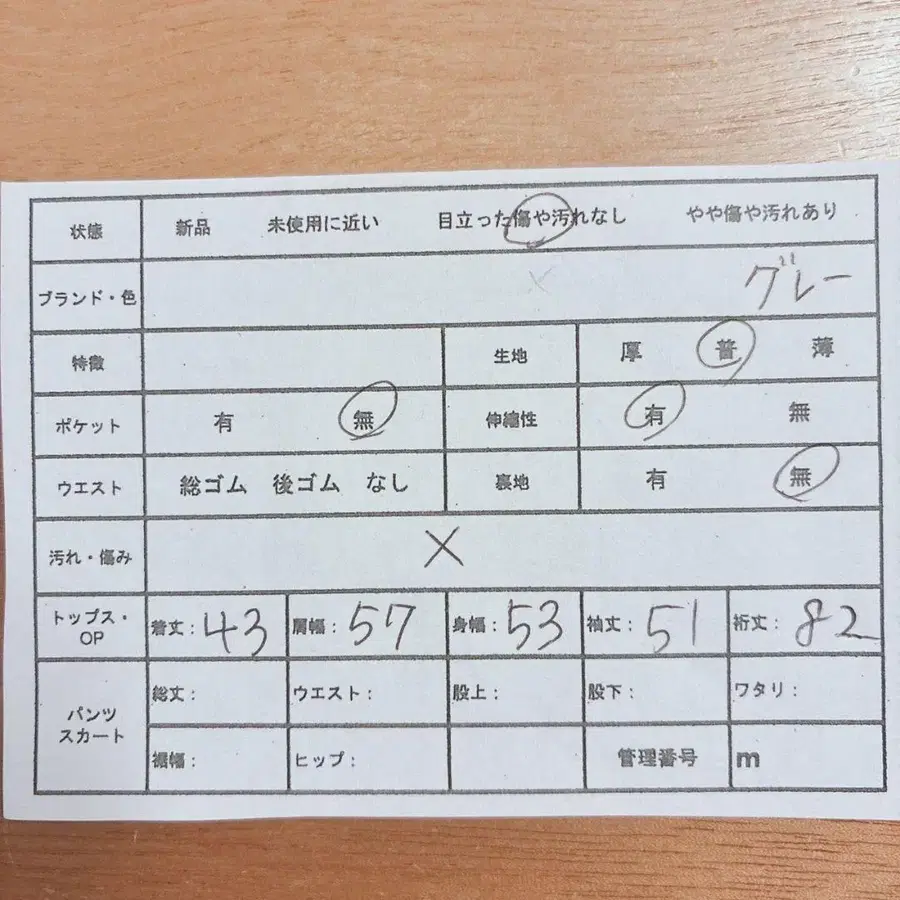 状態 新品 未使用に近い 目立った傷や汚れなし やや傷や汚れあり
ブランド・色 グレー
特徴 生地 厚 普 薄
ポケット 有 無 伸縮性 有 無
ウエスト 総ゴム 後ゴム なし 裏地 有 無
汚れ・傷み ×
トップス・
OP
着丈: 43 肩幅: 57 身幅: 53 袖丈: 51 裄丈: 82
パンツ
スカート
総丈: ウエスト: 股上: 股下: ワタリ:
裾幅: ヒップ: 管理番号 m